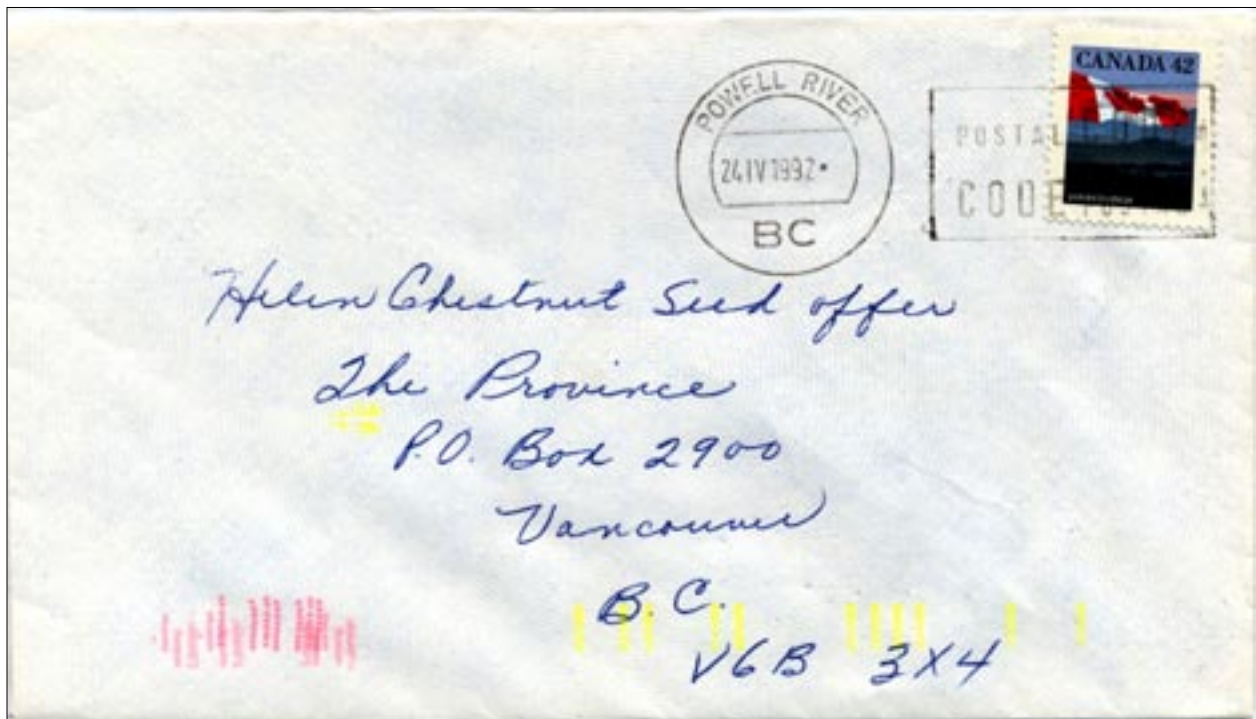 CANADA 42
POWELL RIVER
24 IV 1992
BC
POSTAL
CODE
Helen Chestnut Seed offer
The Province
P.O. Box 2900
Vancouver
B.C.
V6B 3X4